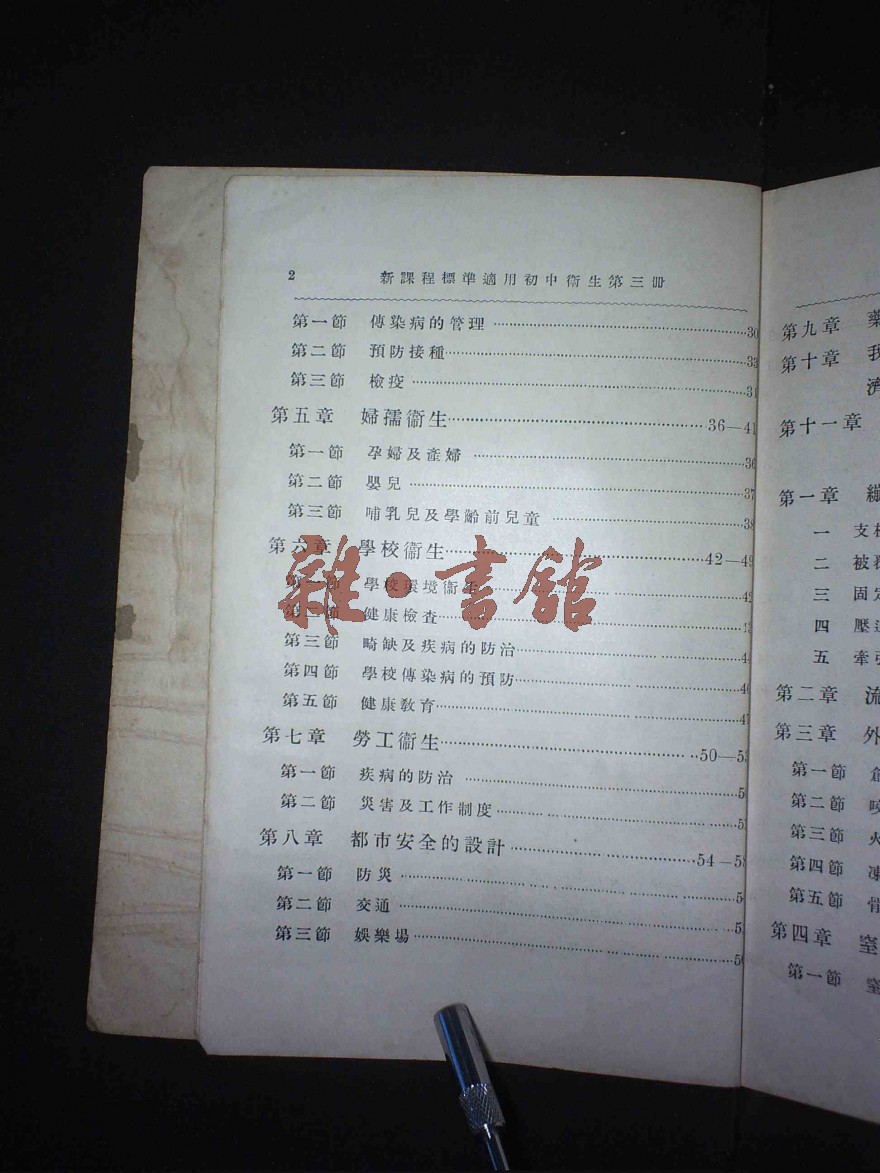 2 新課程標準適用初中衞生第三冊
第一節 傳染病的管理 30
第二節 預防接種 33
第三節 檢疫
第五章 婦孺衞生 36—41
第一節 孕婦及產婦 36
第二節 嬰兒 37
第三節 哺乳兒及學齡前兒童 38
第六章 學校衞生 42—49
第一節 學校環境衞生 42
第二節 健康檢查
第三節 畸缺及疾病的防治
第四節 學校傳染病的預防
第五節 健康敎育
第七章 勞工衞生 50—53
第一節 疾病的防治
第二節 災害及工作制度
第八章 都市安全的設計 54—58
第一節 防災
第二節 交通
第三節 娛樂場
雜·書館
第九章 藥
第十章 我
濟
第十一章
第一章
一 支
二 被
三 固定
四 壓
五 牽
第二章 流
第三章 外
第一節
第二節 咬
第三節 火
第四節 凍
第五節 骨
第四章 窒
第一節 窒